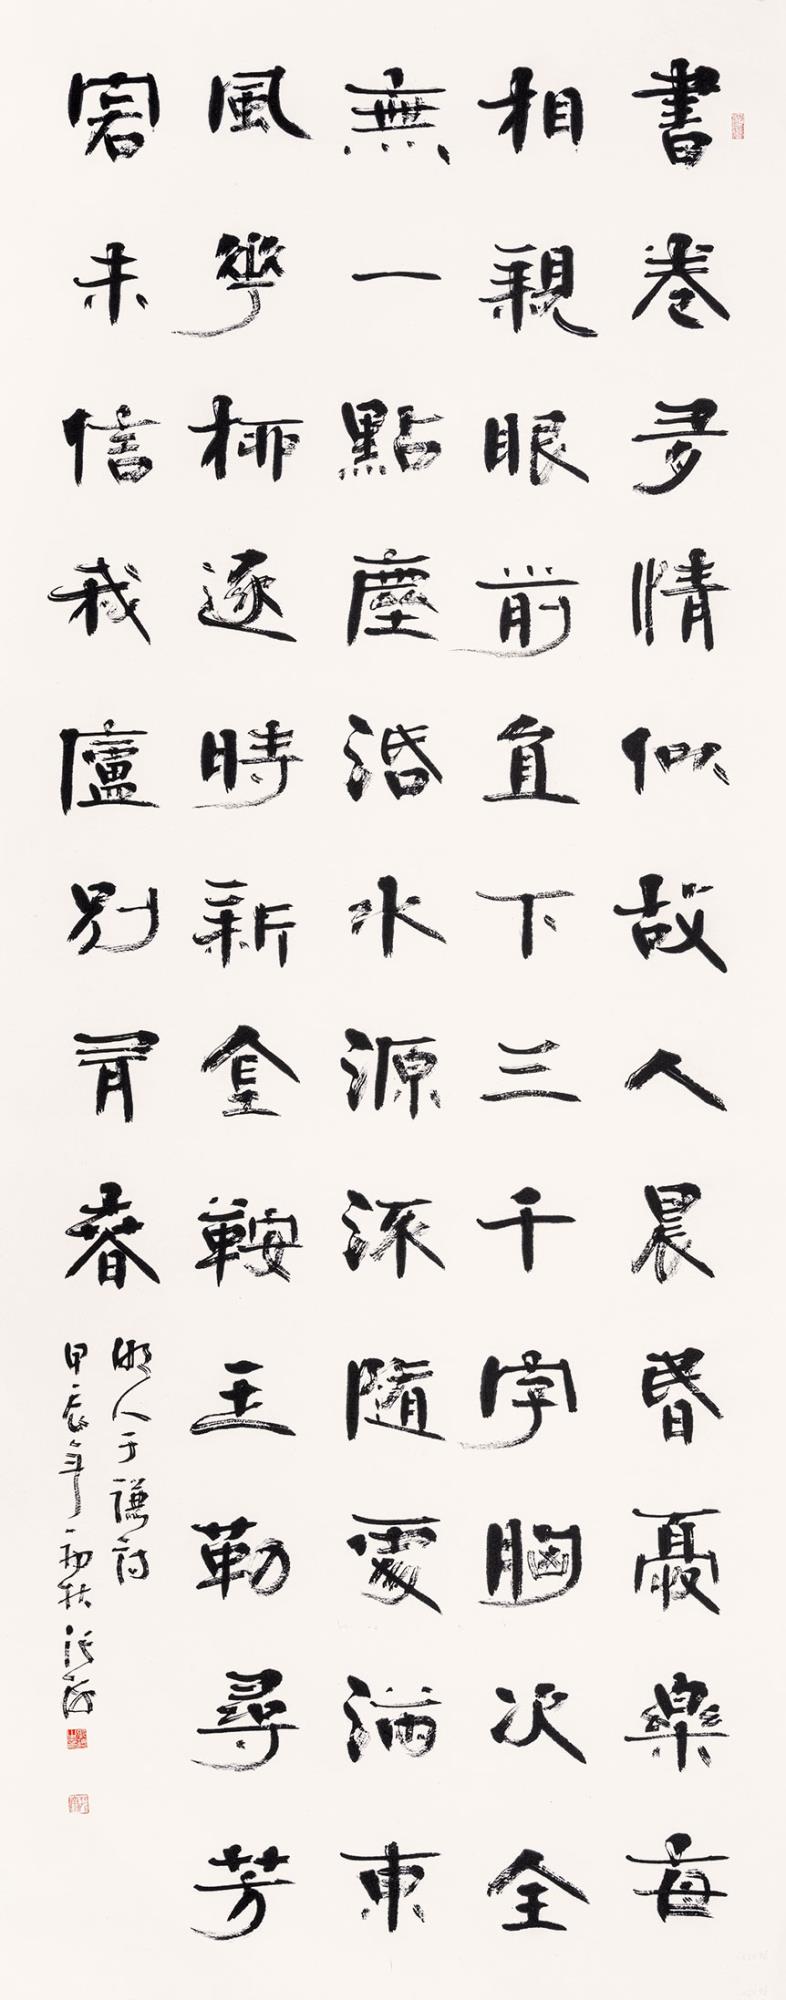 書卷多情似故人晨昏憂樂每
相親眼前直下三千字胸次全
無一點塵活水源流隨處滿東
風華柳逐時新金鞍玉勒尋芳
客未信我廬別有春
明人于謙詩
甲辰年初秋